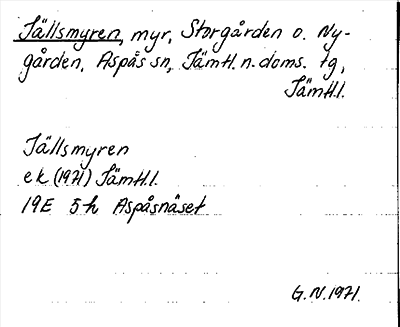 Tällsmyren, myr, Storgården o. Ny-
gården, Aspås sn, Jämtl. n. doms. tg,
Jämtl.l.
Tällsmyren
ek (1971) Jämtl.l.
19E 5h Aspåsnäset
G.N. 1971.